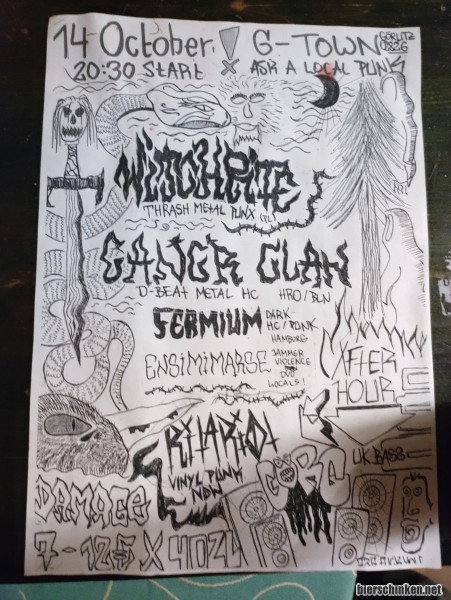 14 October!
G-TOWN GÖRLITZ
20:30 START X ASK A LOCAL PUNK
WITCHBITE
THRASH METAL PUNX (PL)
GANGR CLAN
D-BEAT METAL HC HRO/BLN
FERMIUM DARK-
HC/PUNK
HAMBURG
ENSIMIMARSE JAMMER
VIOLENCE
DUO
LOCALS!
AFTER
HOUR
RILARIOT
VINYL PUNK
NDW
UK BASS
DAMAGE
7-12€ X 40ZŁ
bierschinken.net